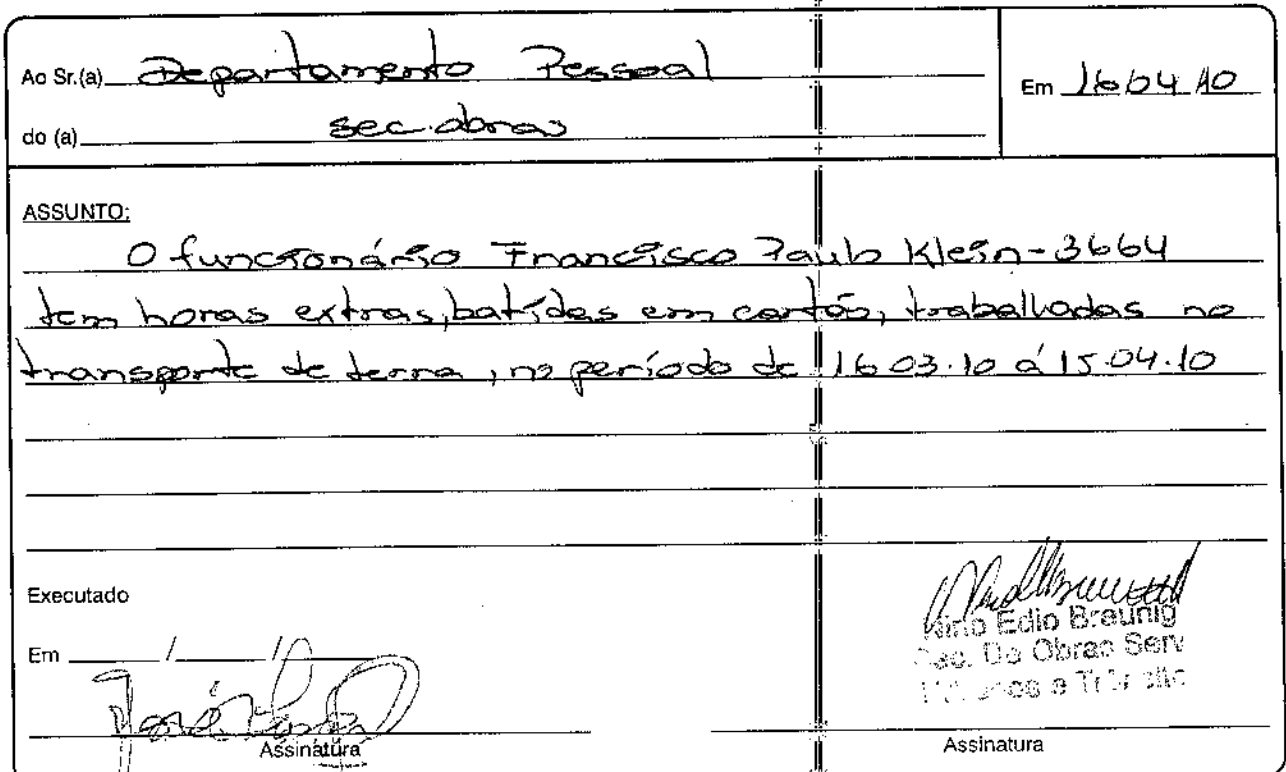 Ao Sr.(a) Departamento Pessoal
Em 16 04 10
do (a) sec. obras
ASSUNTO:
O funcionário Francisco Paulo Klein - 3664
tem horas extras, batidas em cartão, trabalhadas no
transporte de terra, no período de 16.03.10 á 15.04.10
Executado
Em / /
Assinatura
Edio Braunig
Sec. De Obras Serv
e Trânsito
Assinatura